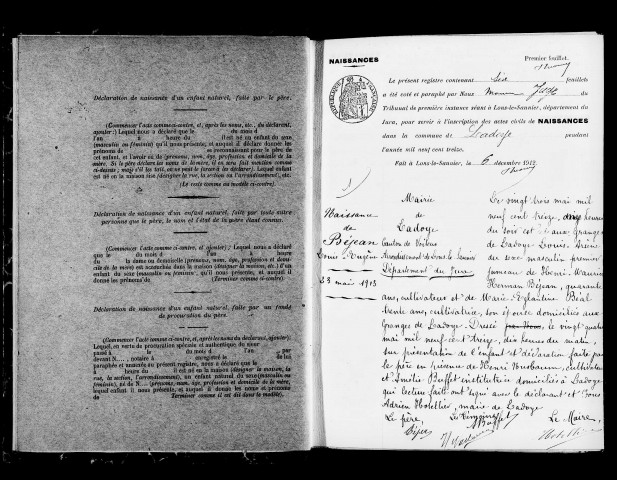 Déclaration de naissance d'un enfant naturel, faite par le père.
(Commencer l'acte comme ci-contre, et, après les noms, etc., du déclarant,
ajouter :) Lequel nous a déclaré que le du mois d
l'an à heure du il est né un enfant du sexe
(masculin ou féminin) qu'il nous présente, et auquel il déclare donner les
prénoms de se reconnaissant pour le père de
cet enfant, et l'avoir eu de (prénoms, nom, âge, profession et domicile de la
mère.
(Le reste comme au modèle ci-contre)
Déclaration de naissance d'un enfant naturel, faite par toute autre
personne que le père, le nom et l'état de la mère étant connus.
(Commencer l'acte comme ci-contre, et ajouter) ; Lequel nous a déclaré
que le du mois d l'an à heure
du la dame ou demoiselle (prénoms, nom, âge, profession et domi-
cile de la mère) est accouchée dans la maison (désigner la maison, etc.) d'un
enfant du sexe (masculin ou féminin), qu'il nous présente, et auquel il
donne les prénoms de (Terminer comme ci-contre).
Déclaration de naissance d'un enfant naturel, faite par un fondé
de procuration du père.
(Commencer l'acte comme ci-contre, et, après les noms du déclarant, ajouter):
Lequel, en vertu de procuration spéciale et authentique du sieur
passé à le du mois d l'an par
devant N..., notaire à enregistrée le de lui
paraphée et annexée au présent registre, nous a déclaré que le
à heure du il est né dans la maison (désigner la maison, la
rue, la section, l'arrondissement), un enfant naturel du sexe (masculin ou
féminin), né de N... (prénoms, nom, âge, profession et domicile de la mère),
lequel enfant il nous présente, et auquel il donne les prénoms
de Terminer comme il est dit dans le modèle).
NAISSANCES
Premier feuillet.
Le présent registre contenant six feuillets
a été coté et paraphé par Nous Juge du
Tribunal de première instance séant à Lons-le-Saunier, département du
Jura, pour servir à l'inscription des actes civils de NAISSANCES
dans la commune de Ladoye pendant
l'année mil neuf cent treize.
Fait à Lons-le-Saunier, le 6 décembre 1912
RÉPUBLIQUE FRANÇAISE
1
Naissance
de
Béjean
Louis Eugène
23 mai 1913
Mairie
de
Ladoye
Canton de Voiteur
Arrondissement de Lons-le-Saunier
Département du Jura
Le vingt trois mai mil
neuf cent treize, onze heures
du soir est né aux granges
de Ladoye Louis
du sexe masculin premier
jumeau de Henri Maurice
Herman Béjean, quarante
ans, cultivateur et de Marie Eglantine Béal
trente ans, cultivatrice, son épouse domiciliés aux
granges de Ladoye. Dressé le vingt quatre
mai mil neuf cent treize, dix heures du matin,
sur présentation de l'enfant et déclaration faite par
le père en présence de Henri cultivateur
et Buffet institutrice domiciliés à Ladoye
qui lecture faite ont signé avec le déclarant et Nous
Adrien Hotellier, maire de Ladoye
Le père, Les témoins, Le Maire,
Buffet